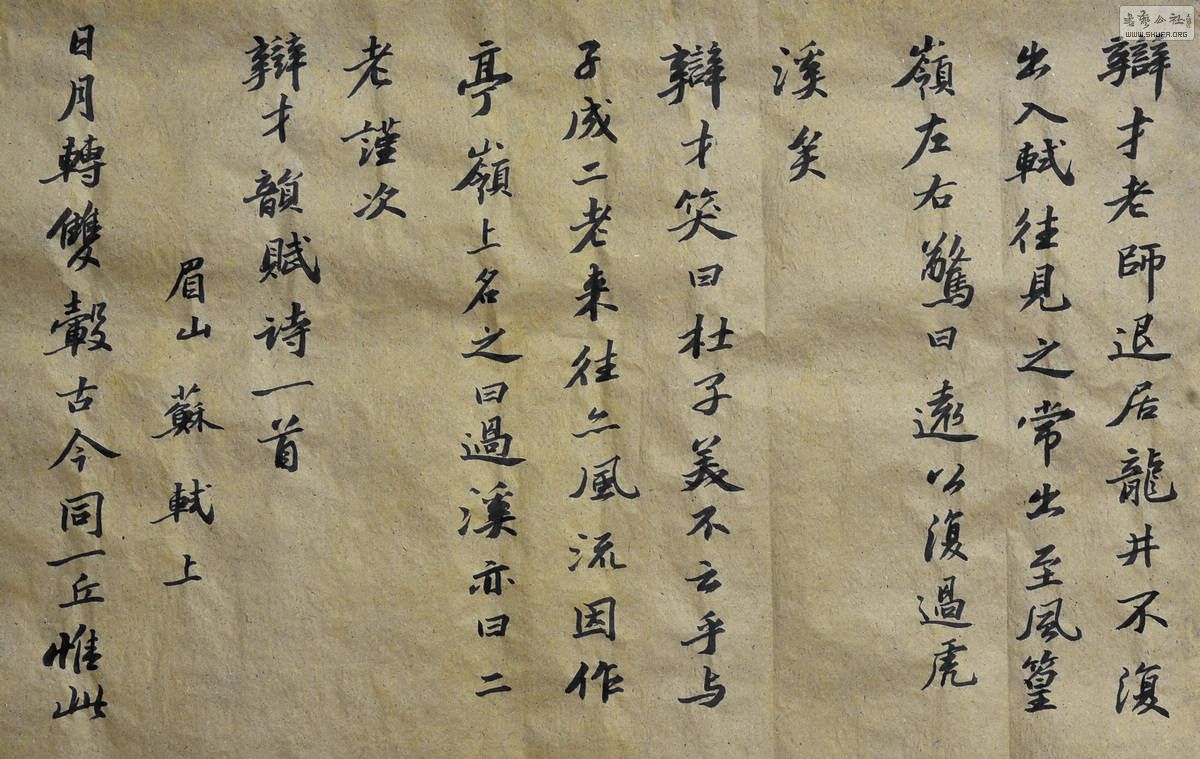 辯才老師退居龍井不復
出入軾往見之常出至風篁
嶺左右驚曰遠公復過虎
溪矣
辯才笑曰杜子美不云乎与
子成二老来往亦風流因作
亭嶺上名之曰過溪亦曰二
老謹次
辯才韻賦诗一首
眉山 蘇軾上
日月轉雙轂古今同一丘惟此
書藝公社
WWW.SHUFA.ORG